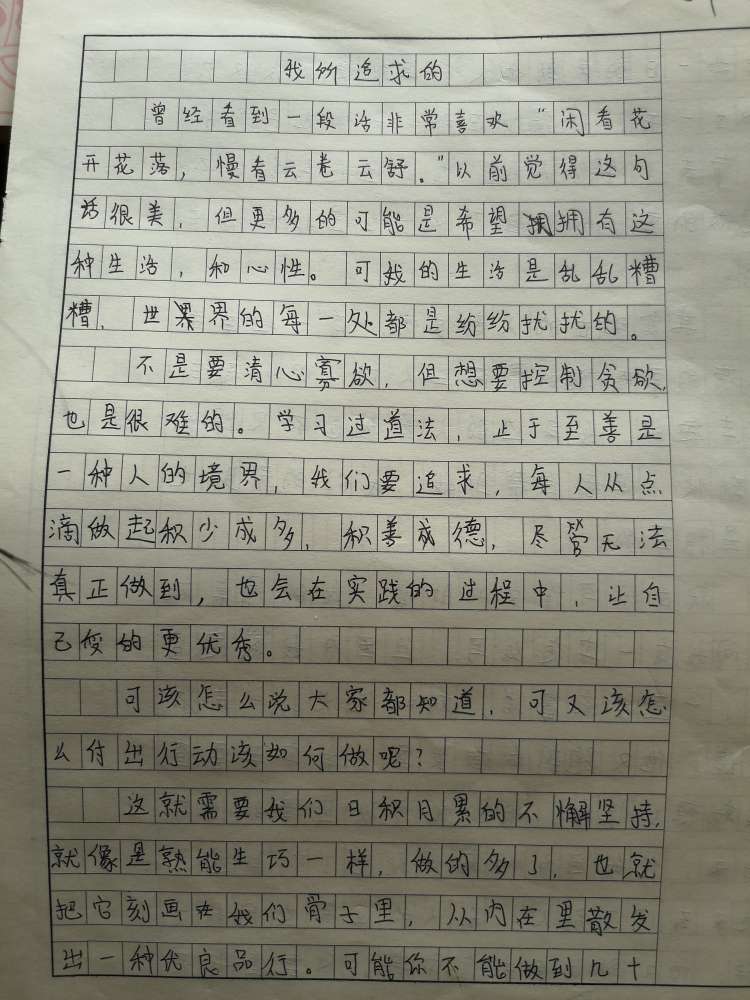 我所追求的
曾经看到一段话非常喜欢“闲看花
开花落，慢看云卷云舒。”以前觉得这句
话很美，但更多的可能是希望拥有这
种生活，和心性。可我的生活是乱乱糟
糟，世界的每一处都是纷纷扰扰的。
不是要清心寡欲，但想要控制贪欲，
也是很难的。学习过道法，止于至善是
一种人的境界，我们要追求，每人从点
滴做起积少成多，积善成德，尽管无法
真正做到，也会在实践的过程中，让自
己变的更优秀。
可该怎么说大家都知道，可又该怎
么付出行动该如何做呢？
这就需要我们日积月累的不懈坚持，
就像是熟能生巧一样，做的多了，也就
把它刻画在我们骨子里，从内在里散发
出一种优良品行。可能你不能做到几十